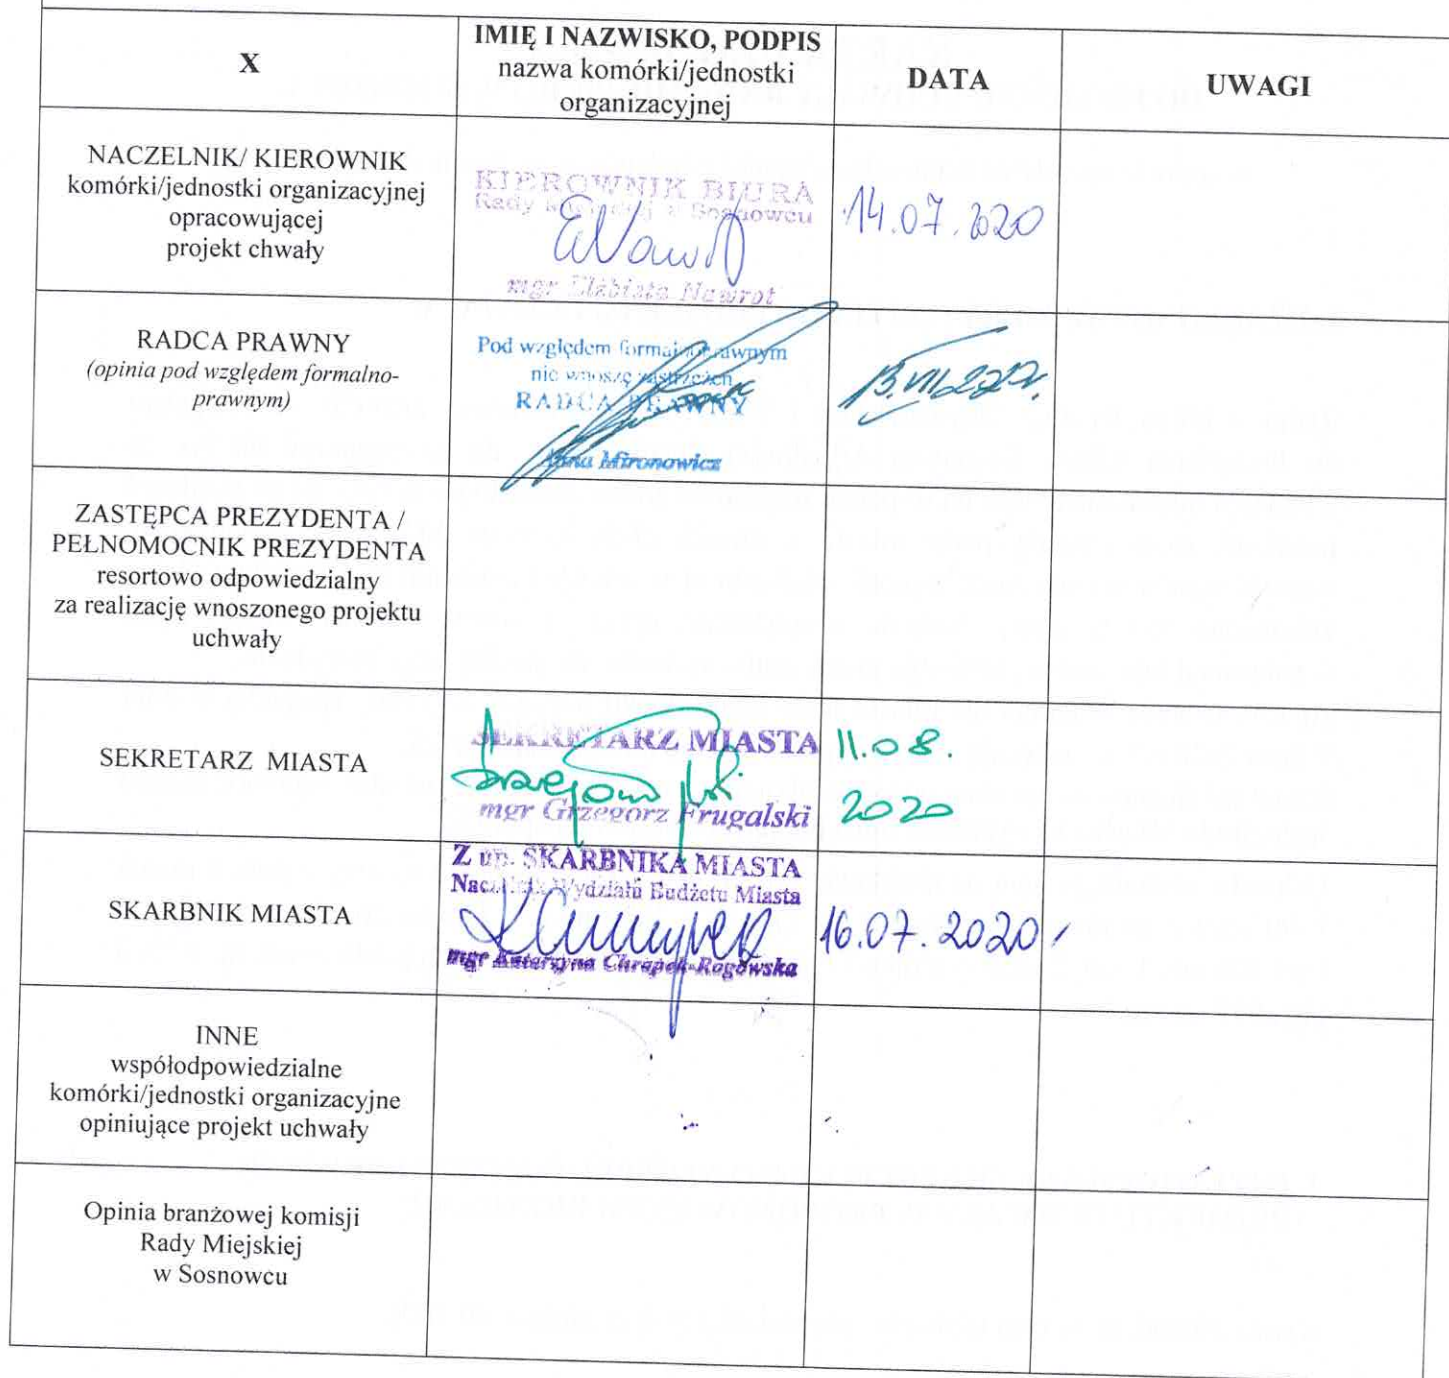 X
IMIĘ I NAZWISKO, PODPIS
nazwa komórki/jednostki
organizacyjnej
DATA
UWAGI
NACZELNIK/ KIEROWNIK
komórki/jednostki organizacyjnej
opracowującej
projekt chwały
KIEROWNIK BIURA
Rady Miejskiej w Sosnowcu
ENawrot
mgr Elżbieta Nawrot
14.07.2020
RADCA PRAWNY
(opinia pod względem formalno-
prawnym)
Pod względem formalnoprawnym
nie wnoszę zastrzeżeń
RADCA PRAWNY
Anna Mironowicz
ZASTĘPCA PREZYDENTA /
PEŁNOMOCNIK PREZYDENTA
resortowo odpowiedzialny
za realizację wnoszonego projektu
uchwały
SEKRETARZ MIASTA
SEKRETARZ MIASTA
mgr Grzegorz Frugalski
11.08.
2020
SKARBNIK MIASTA
Z up. SKARBNIKA MIASTA
Naczelnik Wydziału Budżetu Miasta
mgr Katarzyna Chrapek-Rogowska
16.07.2020
INNE
współodpowiedzialne
komórki/jednostki organizacyjne
opiniujące projekt uchwały
Opinia branżowej komisji
Rady Miejskiej
w Sosnowcu